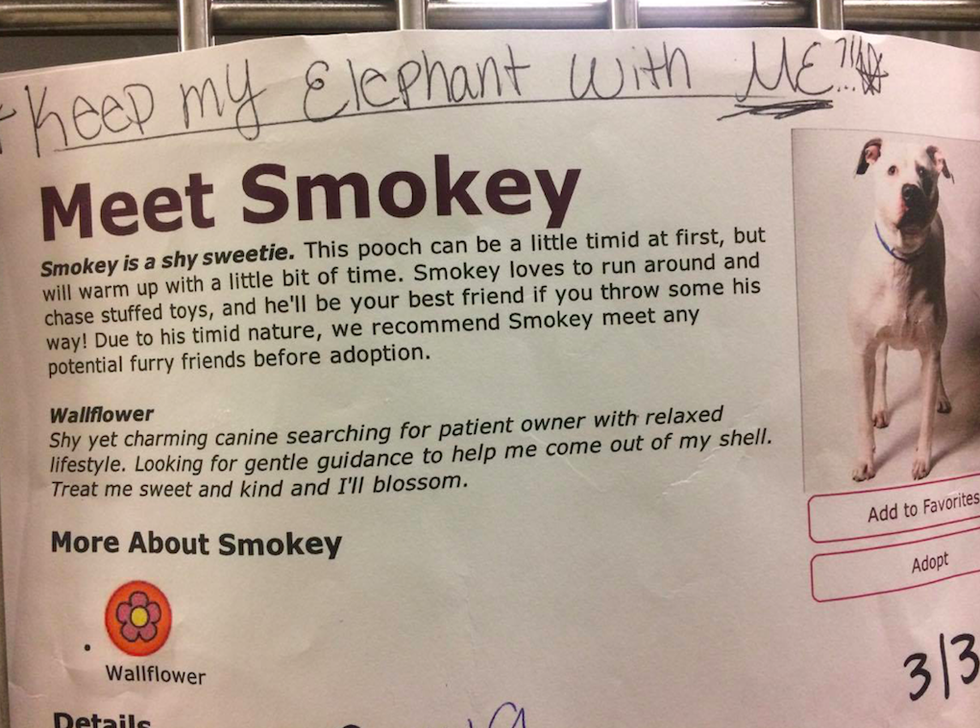 Keep my Elephant with ME...!!
Meet Smokey
Smokey is a shy sweetie. This pooch can be a little timid at first, but
will warm up with a little bit of time. Smokey loves to run around and
chase stuffed toys, and he'll be your best friend if you throw some his
way! Due to his timid nature, we recommend Smokey meet any
potential furry friends before adoption.
Wallflower
Shy yet charming canine searching for patient owner with relaxed
lifestyle. Looking for gentle guidance to help me come out of my shell.
Treat me sweet and kind and I'll blossom.
Add to Favorites
Adopt
More About Smokey
Wallflower
3/3
Details